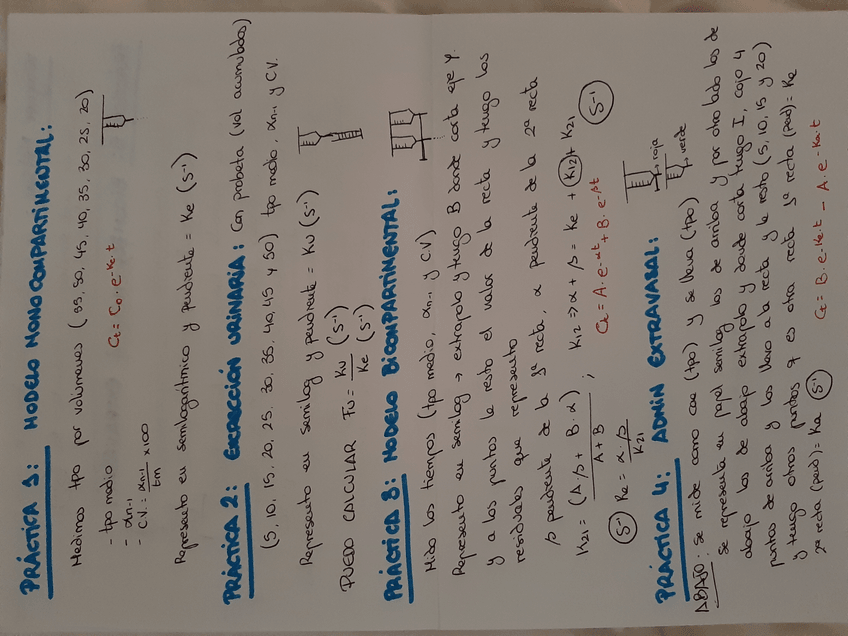 PRÁCTICA 1: MODELO MONOCOMPARTIMENTAL:
Medimos tpo por volúmenes (55, 50, 45, 40, 35, 30, 25, 20)
- tpo medio
- αn-1
- CV = αn-1 / tm x100
Ct = C0 · e-Ke·t
Represento en semilogarítmico y pendiente = Ke (s-1)
PRÁCTICA 2: EXCRECCIÓN URINARIA: Con probeta (vol acumulados)
(5, 10, 15, 20, 25, 30, 35, 40, 45 y 50) tpo medio, αn-1 y CV.
Represento en semilog y pendiente = KU (s-1)
PUEDO CALCULAR FU = KU (s-1) / Ke (s-1)
PRÁCTICA 3: MODELO BICOMPARTIMENTAL:
Mido los tiempos (tpo medio, αn-1 y CV)
Represento en semilog → extrapolo y tengo B donde corta eje Y.
y a los puntos le resto el valor de la recta y tengo los
residuales que represento
β pendiente de la 1ª recta, α pendiente de la 2ª recta
K21 = (A·β + B·α) / A+B ; K12 => α + β = Ke + K12 + K21
s-1 Ke = α·β / K21
s-1
Ct = A·e-αt + B·e-βt
PRÁCTICA 4: ADMIN EXTRAVASAL:
roja
verde
ABAJO: se mide como cae (tpo) y se lleva (tpo)
se representa en papel semilog los de arriba y por otro lado los de
abajo los de abajo extrapolo y donde corta tengo I, cojo 4
puntos de arriba y los llevo a la recta y le resto (5, 10, 15 y 20)
y tengo otros puntos q es otra recta 1ª recta (pend) = Ke
2ª recta (pend) = Ka s-1
Ct = B·e-Ke·t - A·e-Ka·t